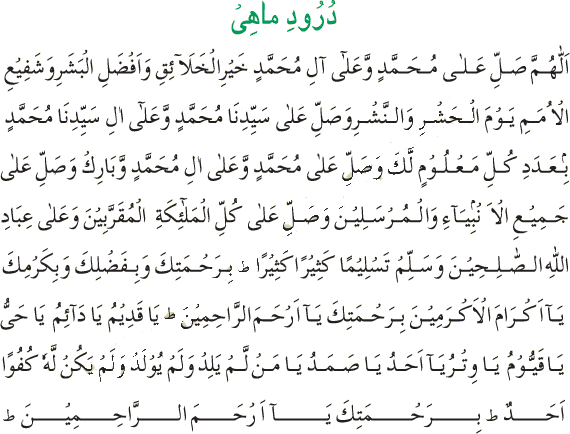 دُرُودِ ماهِیْ
اَللّٰهُمَّ صَلِّ عَلٰى مُحَمَّدٍ وَّعَلٰٓى آلِ مُحَمَّدٍ خَيْرِالْخَلَآئِقِ وَاَفْضَلِ الْبَشَرِوَشَفِيْعِ
الْاُمَمِ يَوْمَ الْحَشْرِ وَالنَّشْرِوَصَلِّ عَلٰى سَيِّدِنَا مُحَمَّدٍ وَّعَلٰٓى اٰلِ سَيِّدِنَا مُحَمَّدٍ
بِۢعَدَدِ كُلِّ مَعْلُوْمٍ لَّكَ وَصَلِّ عَلٰى مُحَمَّدٍ وَّعَلٰى اٰلِ مُحَمَّدٍ وَّبَارِكْ وَصَلِّ عَلٰى
جَمِيْعِ الْاَنْۢبِيَآءِ وَالْمُرْسَلِيْنَ وَصَلِّ عَلٰى كُلِّ الْمَلٰٓئِكَةِ الْمُقَرَّبِيْنَ وَعَلٰى عِبَادِ
اللّٰهِ الصّٰلِحِيْنَ وَسَلِّمْ تَسْلِيْمًا كَثِيْرًا كَثِيْرًا ط بِرَحْمَتِكَ وَبِفَضْلِكَ وَبِكَرْمِكَ
يَآ اَكْرَامَ الْاَكْرَمِيْنَ بِرَحْمَتِكَ يَآ اَرْحَمَ الرَّاحِمِيْنَ ط يَا قَدِيْمُ يَا دَآئِمُ يَا حَيُّ
يَا قَيُّوْمُ يَا وِتْرُ يَآ اَحَدُ يَا صَمَدُ يَا مَنْ لَّمْ يَلِدْ وَلَمْ يُوْلَدْ وَلَمْ يَكُنْ لَّهٗ كُفُوًا
اَحَدٌ ط بِرَحْمَتِكَ يَآ اَرْحَمَ الرَّاحِمِيْنَ ط